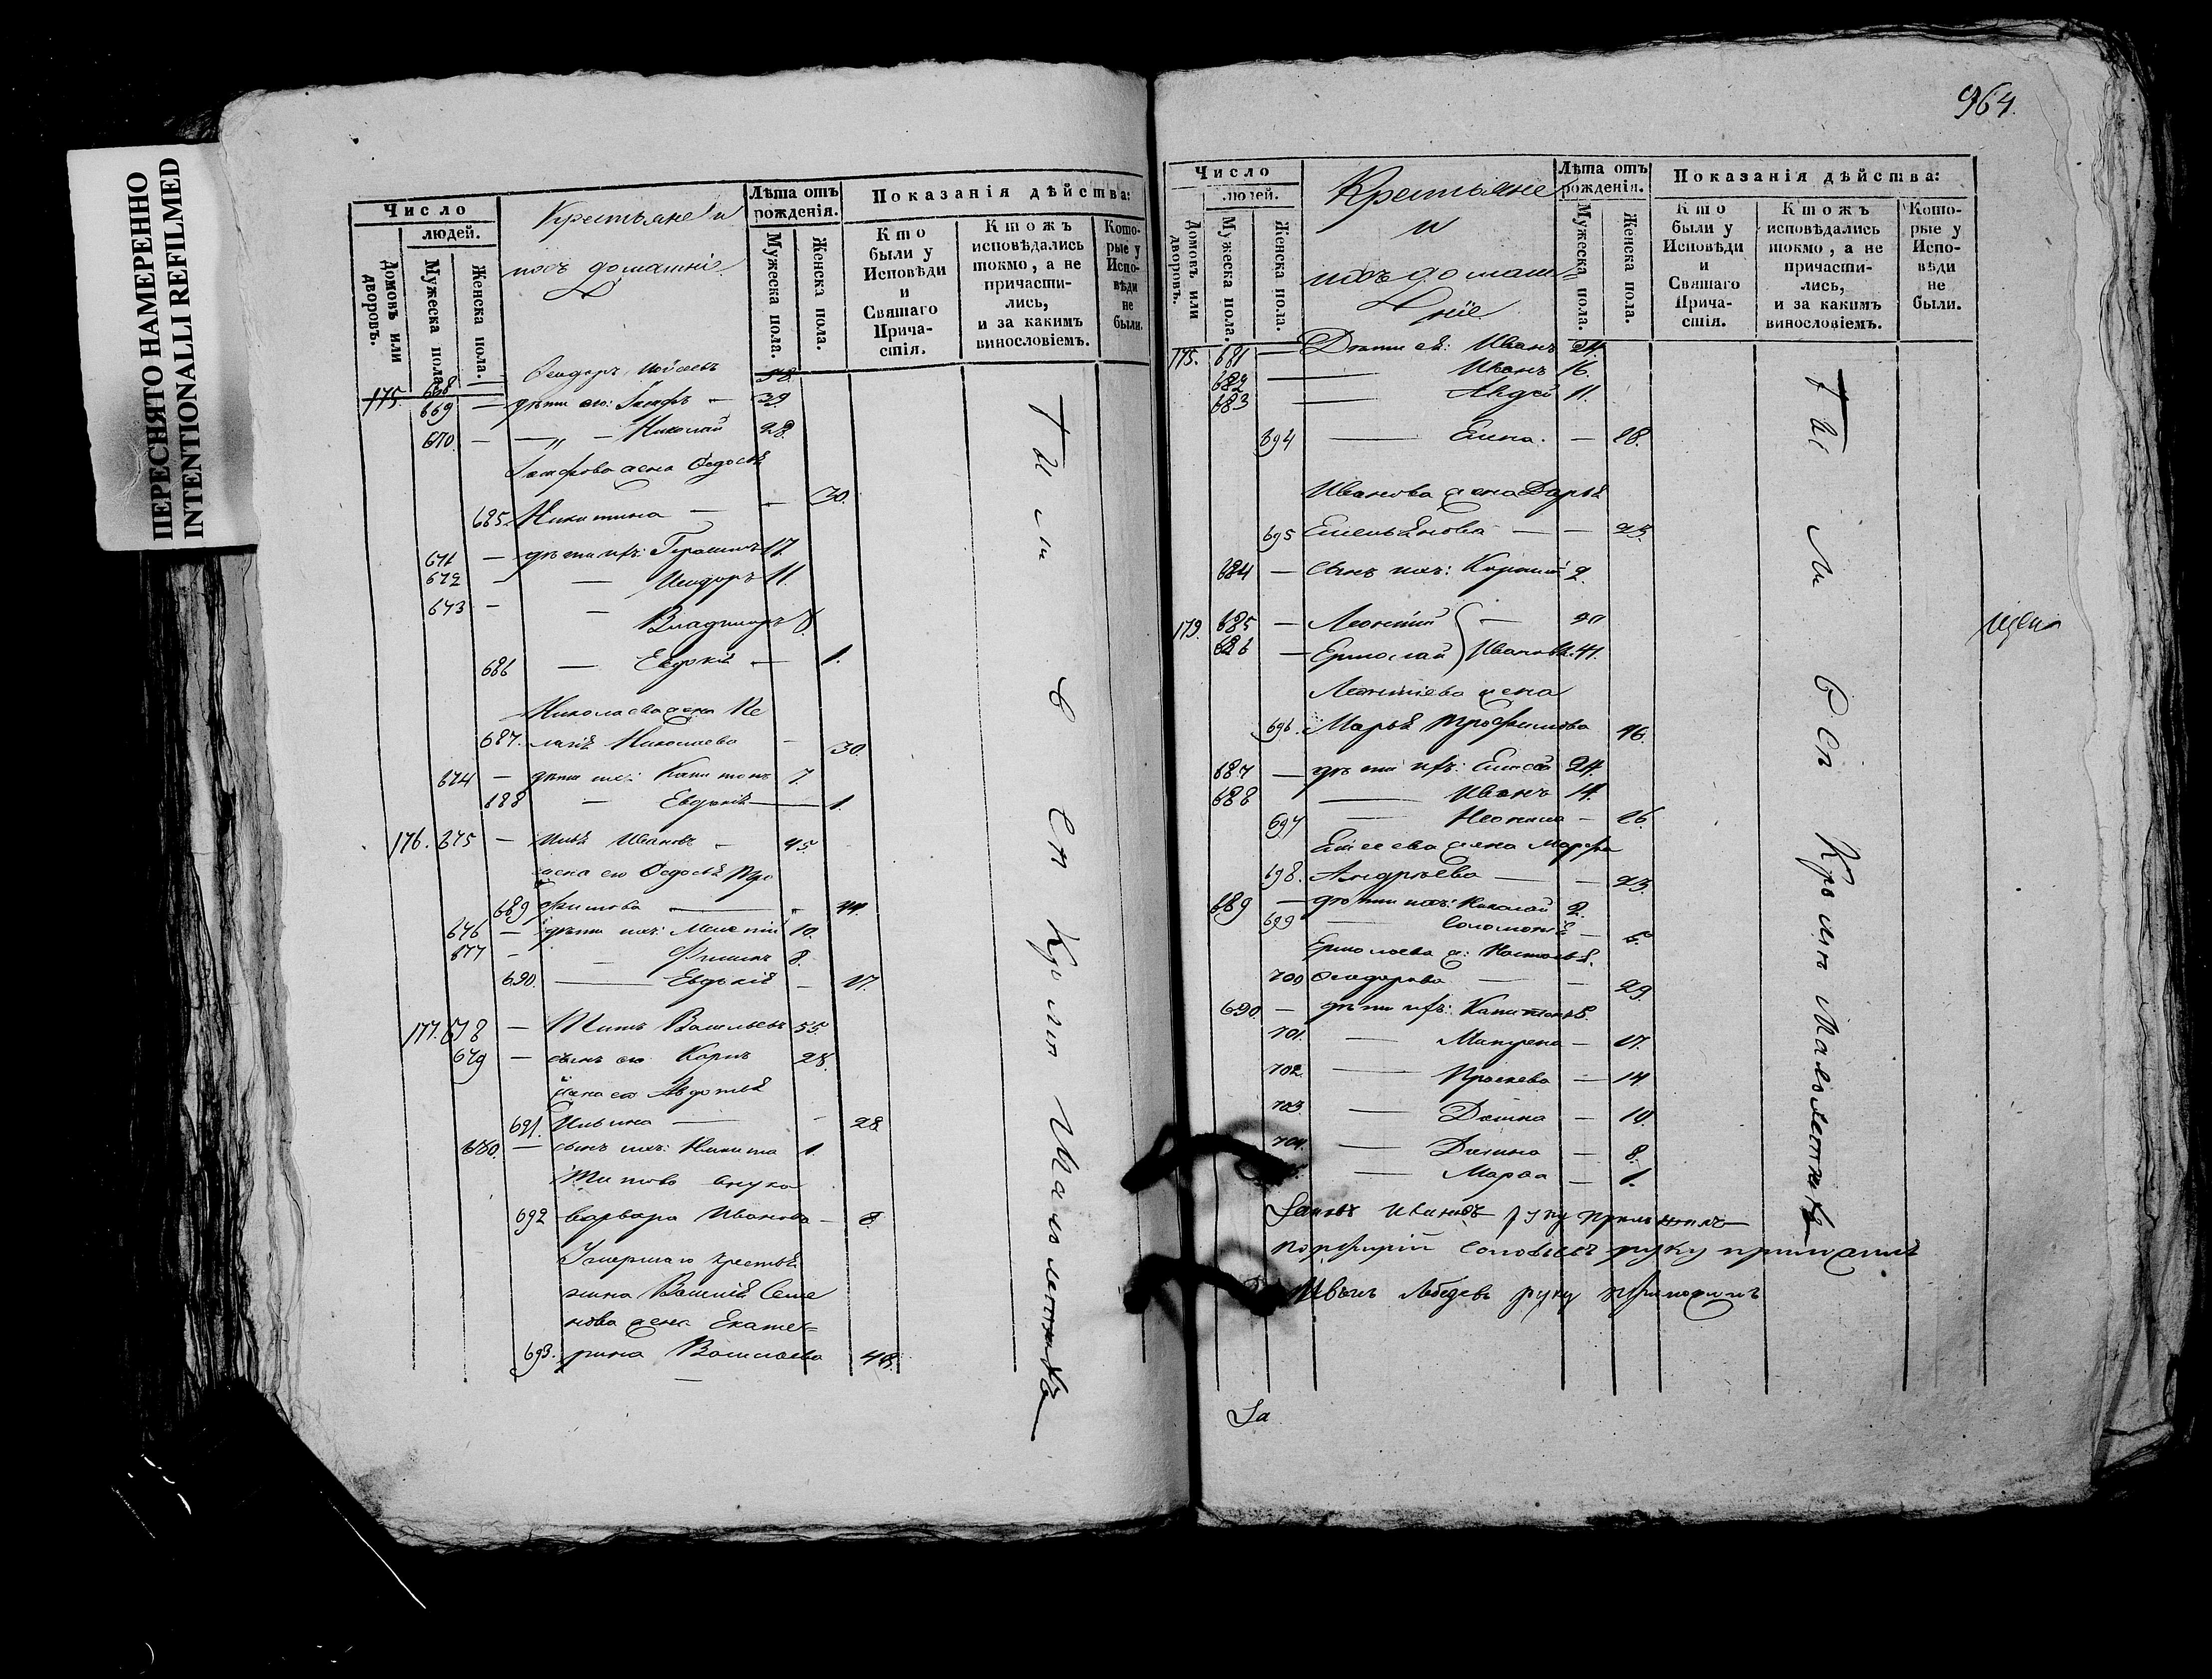 ПЕРЕСНЯТО НАМЕРЕННО
INTENTIONALLI REFILMED
Число
людей.
Домовъ или дворовъ.
Мужеска пола.
Женска пола.
Крестьяне и
ихъ домашніе
Лѣта отъ рожденія.
Мужеска пола.
Женска пола.
Показанія дѣйства:
Кто были у Исповѣди и Святаго Причастія.
Ктожъ исповѣдались токмо, а не причастились, и за какимъ винословіемъ.
Которые у Исповѣди не были.
175. 668 Ѳеодоръ 58
669 — дѣти его: — 39
670. — — Николай 28.
жена Ѳедосья
685. Никитина — — 30.
671 — дѣти ихъ: 17
672 — — 11.
673 — — Владимиръ 8.
686 — Евдокія — 1.
Николаева жена Пе
687. лагія Николаева — 30
674 — дѣти ихъ: Капитонъ 7.
688 — Евдокія — 1.
176. 675 — Иванов 45
жена его Ѳедосья Тро
689 фимова — 44.
676 — дѣти ихъ: 10.
677 — — Филипъ 8.
690. — Евдокія — 17.
177. 678 — Титъ Васильевъ 55.
679 — сынъ его Карпъ 28.
жена его Авдотья
691. Ильина — — 28
680. — сынъ ихъ: Никита 1.
Титова внука
692 Варвара Иванова — 8.
Умершаго крестья
нина Василія Семе
нова жена Екате=
693. рина Васильева 48.
Были
Кромѣ Малолетнихъ
964.
Число
людей.
Домовъ или дворовъ.
Мужеска пола.
Женска пола.
Крестьяне
и
ихъ домаш=
ніе
Лѣта отъ рожденія.
Мужеска пола.
Женска пола.
Показанія дѣйства:
Кто были у Исповѣди и Святаго Причастія.
Ктожъ исповѣдались токмо, а не причастились, и за какимъ винословіемъ.
Которые у Исповѣди не были.
175. 681 — Дѣти ея: Иванъ 24.
682 — Иванъ 16.
683 — Авдей 11.
694 — Елена. — 28.
Иванова жена Дарья
695 Емельянова — — 23.
684 — Сынъ ихъ: 2.
179. 685 — Леонтій —
686 — Ермолай Ивановы. 41.
Леонтіева жена
696. Марья Трофимова 46.
687 — дѣти ихъ: Елисей 24.
688 — Иванъ 14.
697 — Неонила — 26.
Елисеева жена Марфа
698. Андрѣева — — 23.
689 — дѣти ихъ: Николай 2.
699 — Соломонія —
Ермолаева ж: Настасья
700 Ѳеодорова — — 29.
690. — дѣти ихъ: Капитонъ 8.
701. — Матрена — 17.
702. — Прасковья — 14
703. — Домна — 10.
704. — — 8.
— Марѳа — 1.
Были
Кромѣ Малолетнихъ
Ивановъ руку приложилъ
Порфирій Соловьевъ руку приложилъ
Иванъ Лебедевъ руку приложилъ
За